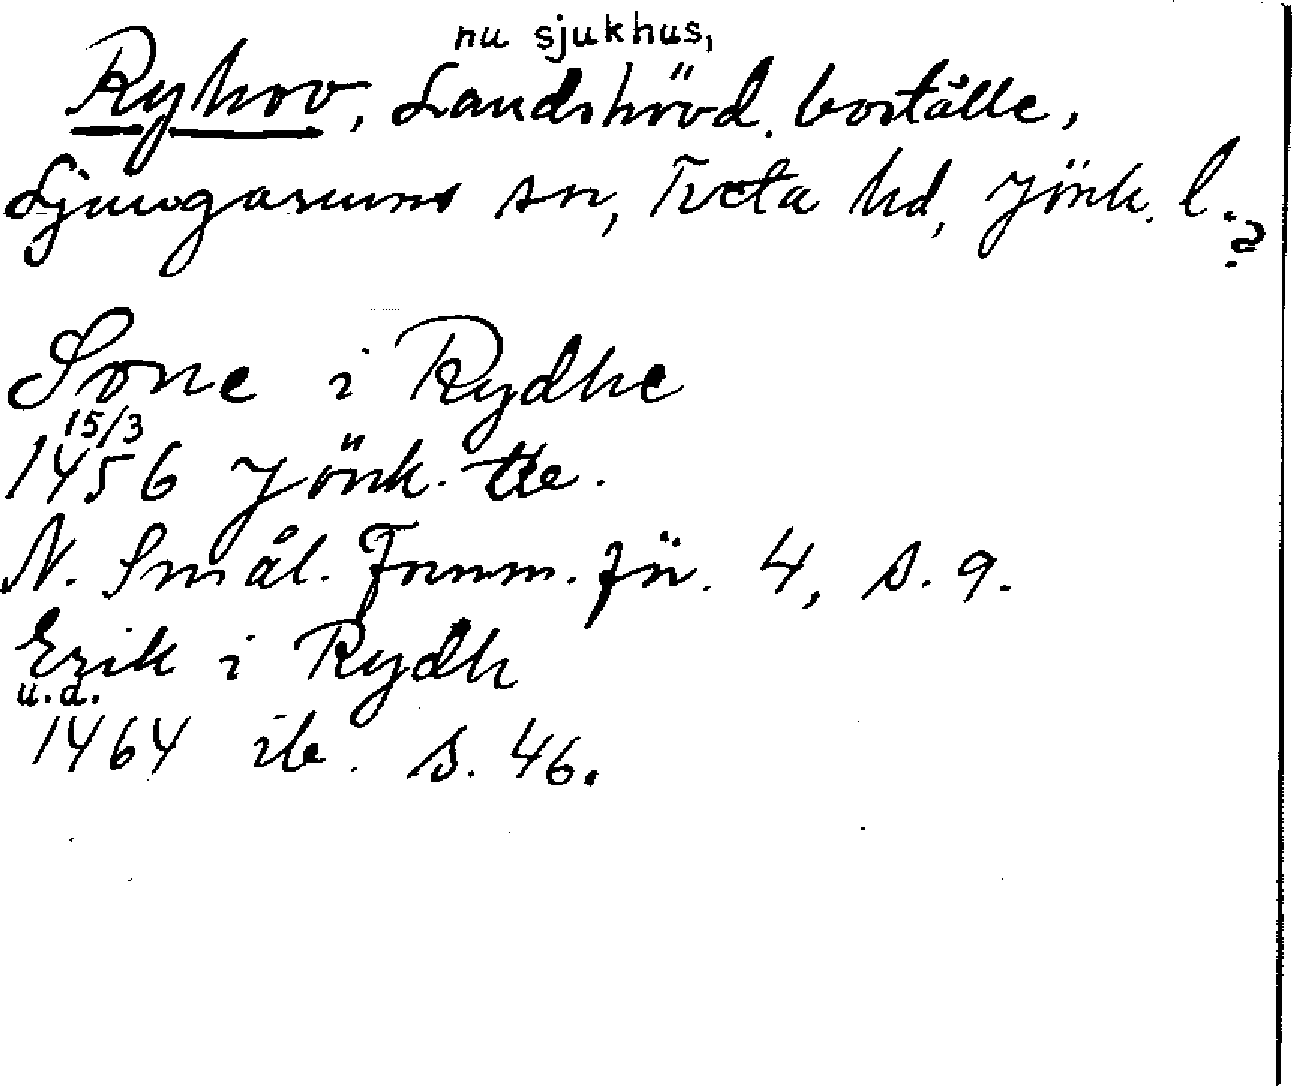 nu sjukhus,
Ryhov, Landshövd. boställe,
Ljungarums sn, Tveta hd, Jönk. l. ?
Sone i Rydhe
15/3
1456 Jönk. tb.
N. Smål. Fornm. för. 4, s. 9.
Erik i Rydh
u.d.
1464 ib. s. 46.